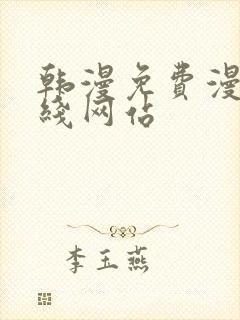 韩漫免费漫
线网站
李玉燕